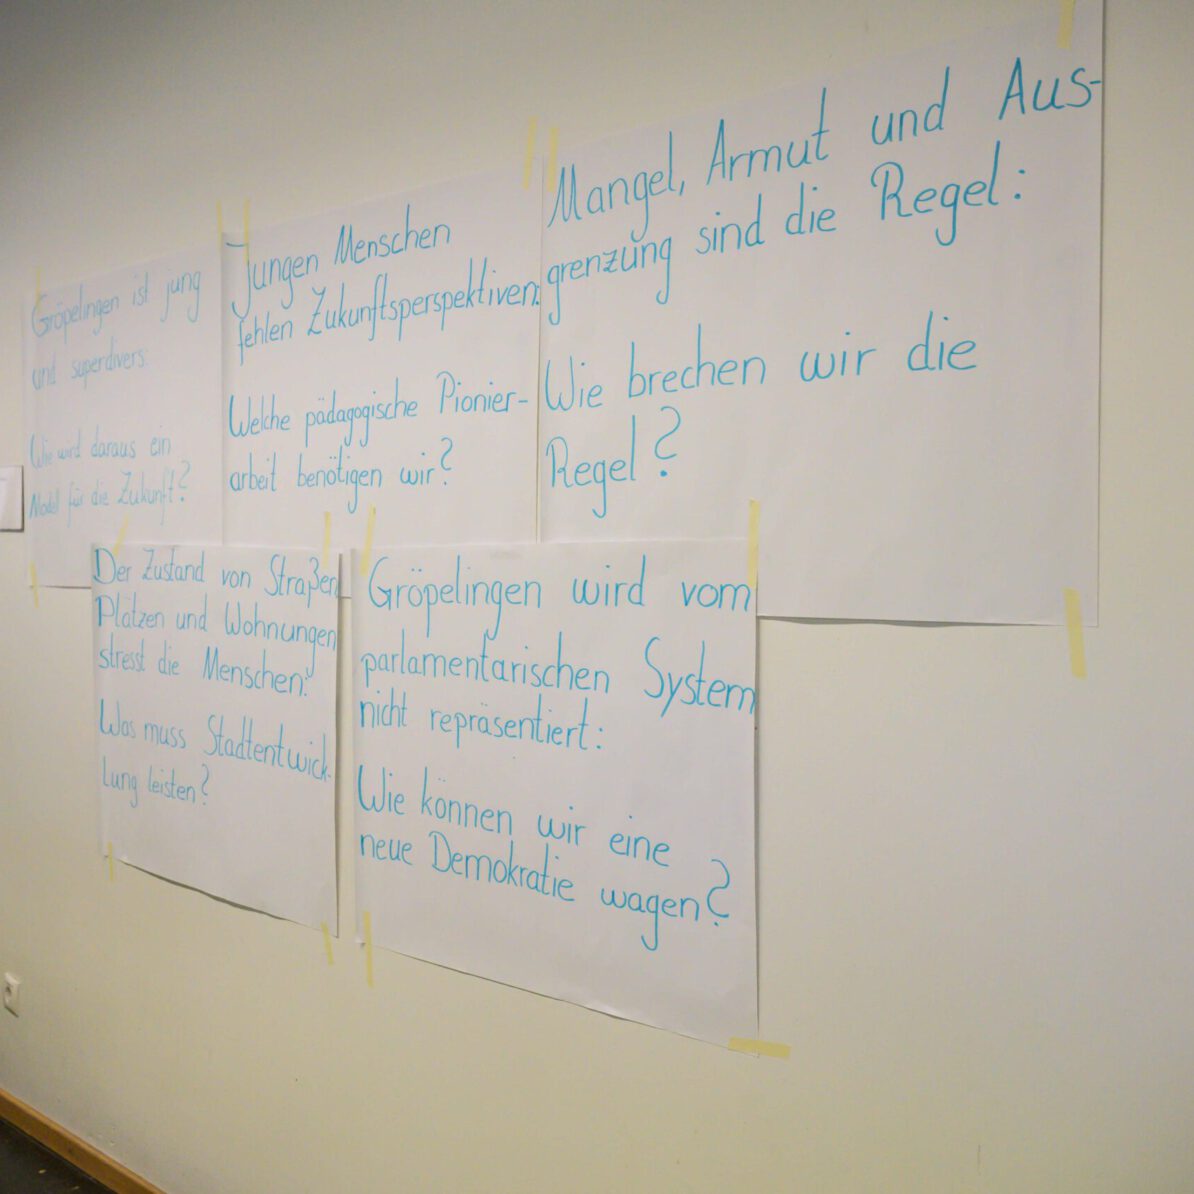 Gröpelingen ist jung
und superdivers:
Wie wird daraus ein
Modell für die Zukunft?
Jungen Menschen
fehlen Zukunftsperspektiven:
Welche pädagogische Pionier-
arbeit benötigen wir?
Mangel, Armut und Aus-
grenzung sind die Regel:
Wie brechen wir die
Regel?
Der Zustand von Straßen
Plätzen und Wohnungen
stresst die Menschen:
Was muss Stadtentwick-
lung leisten?
Gröpelingen wird vom
parlamentarischen System
nicht repräsentiert:
Wie können wir eine
neue Demokratie wagen?